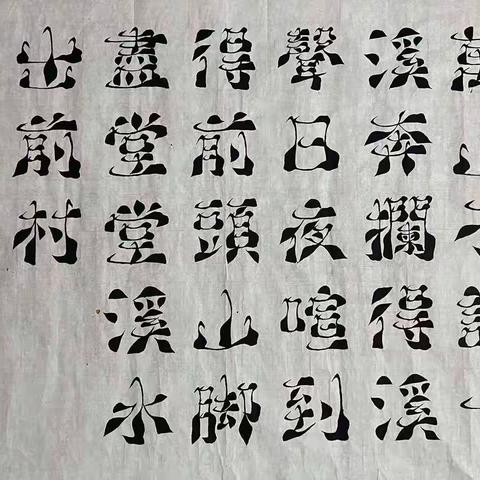 溪奔攔得溪
聲日夜喧到
得前頭山脚
盡堂堂溪水
出前村